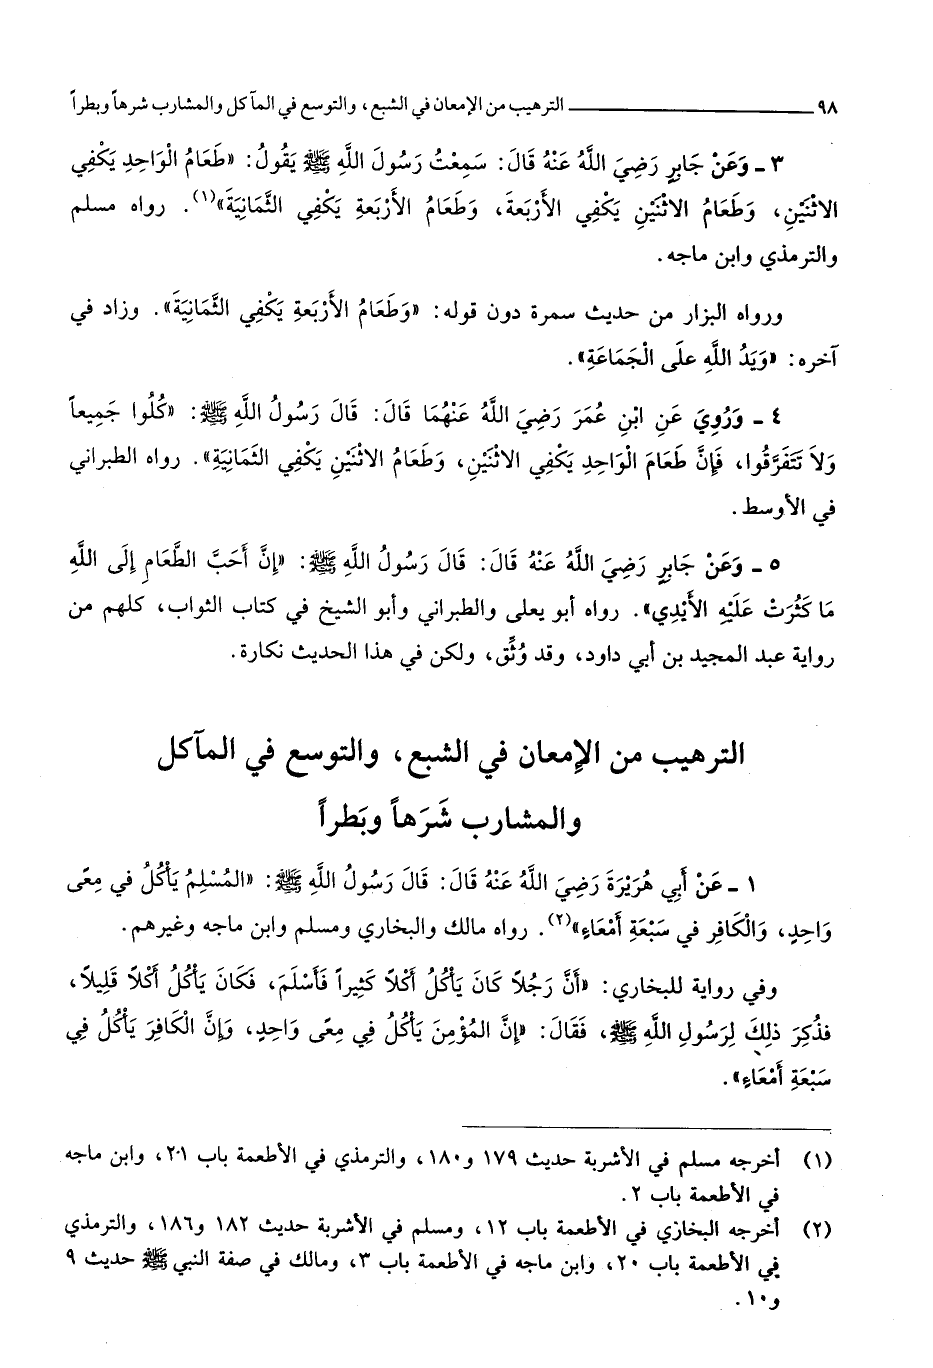 ٩٨ ــــــــــ الترهيب من الإمعان في الشبع، والتوسع في المآكل والمشارب شرهاً وبطراً
٣ ـ وَعَنْ جَابِرٍ رَضِيَ اللَّهُ عَنْهُ قَالَ: سَمِعْتُ رَسُولَ اللَّهِ ﷺ يَقُولُ: «طَعَامُ الْوَاحِدِ يَكْفِي
الاثْنَيْنِ، وَطَعَامُ الاثْنَيْنِ يَكْفِي الأَرْبَعةَ، وَطَعَامُ الأَرْبَعةِ يَكْفِي الثَّمَانِيَةَ»(١). رواه مسلم
والترمذي وابن ماجه.
ورواه البزار من حديث سمرة دون قوله: «وَطَعَامُ الأَرْبَعةِ يَكْفِي الثَّمَانِيَةَ». وزاد في
آخره: «وَيَدُ اللَّهِ علَى الْجَمَاعَةِ».
٤ ـ وَرُوِيَ عَنِ ابْنِ عُمَرَ رَضِيَ اللَّهُ عَنْهُمَا قَالَ: قَالَ رَسُولُ اللَّهِ ﷺ: «كُلُوا جَمِيعاً
وَلاَ تَتَفَرَّقُوا، فَإِنَّ طَعَامَ الْوَاحِدِ يَكْفِي الاثْنَيْنِ، وَطَعَامُ الاثْنَيْنِ يَكْفِي الثَمَانِيَةِ». رواه الطبراني
في الأوسط.
٥ ـ وَعَنْ جَابِرٍ رَضِيَ اللَّهُ عَنْهُ قَالَ: قَالَ رَسُولُ اللَّهِ ﷺ: «إِنَّ أَحَبَّ الطَّعَامِ إِلَى اللَّهِ
مَا كَثُرَتْ عَلَيْهِ الأَيْدِي». رواه أبو يعلى والطبراني وأبو الشيخ في كتاب الثواب، كلهم من
رواية عبد المجيد بن أبي داود، وقد وُثِّق، ولكن في هذا الحديث نكارة.
الترهيب من الإمعان في الشبع، والتوسع في المآكل
والمشارب شَرَهاً وبَطراً
١ ـ عَنْ أَبِي هُرَيْرَةَ رَضِيَ اللَّهُ عَنْهُ قَالَ: قَالَ رَسُولُ اللَّهِ ﷺ: «المُسْلِمُ يَأْكُلُ في مِعًى
وَاحِدٍ، وَالْكَافِر في سَبْعَةِ أَمْعَاءٍ»(٢). رواه مالك والبخاري ومسلم وابن ماجه وغيرهم.
وفي رواية للبخاري: «أَنَّ رَجُلاً كَانَ يَأْكُلُ أَكْلاً كَثِيراً فَأَسْلَمَ، فَكَانَ يَأْكُلُ أَكْلاً قَلِيلاً،
فذُكِرَ ذلِكَ لِرَسُولِ اللَّهِ ﷺ، فَقَالَ: «إِنَّ المُؤْمِنَ يَأْكُلُ فِي مِعًى وَاحِدٍ، وَإِنَّ الْكَافِرَ يَأْكُلُ فِي
سَبْعَةِ أَمْعَاءٍ».
(١) أخرجه مسلم في الأشربة حديث ١٧٩ و١٨٠، والترمذي في الأطعمة باب ٢٠١، وابن ماجه
في الأطعمة باب ٢.
(٢) أخرجه البخاري في الأطعمة باب ١٢، ومسلم في الأشربة حديث ١٨٢ و١٨٦، والترمذي
في الأطعمة باب ٢٠، وابن ماجه في الأطعمة باب ٣، ومالك في صفة النبي ﷺ حديث ٩
و١٠.